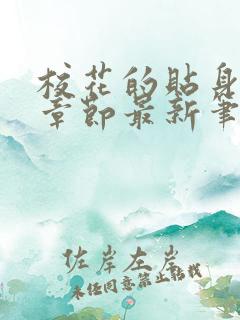 校花的贴身
章节最新笔
佐岸左岸
未经同意禁止转载